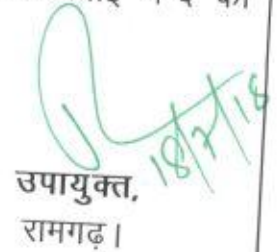 18/7/18
उपायुक्त,
रामगढ़।